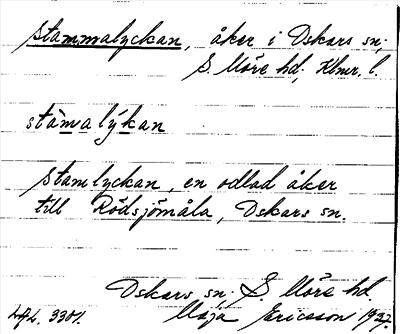 Stammalyckan, åker i Oskars sn,
S. Möre hd, Klmr. l.
stàmalýkan
Stamlyckan, en odlad åker
till Rödsjömåla, Oskars sn.
Oskars sn. S. Möre hd.
Maja Ericsson 1927.